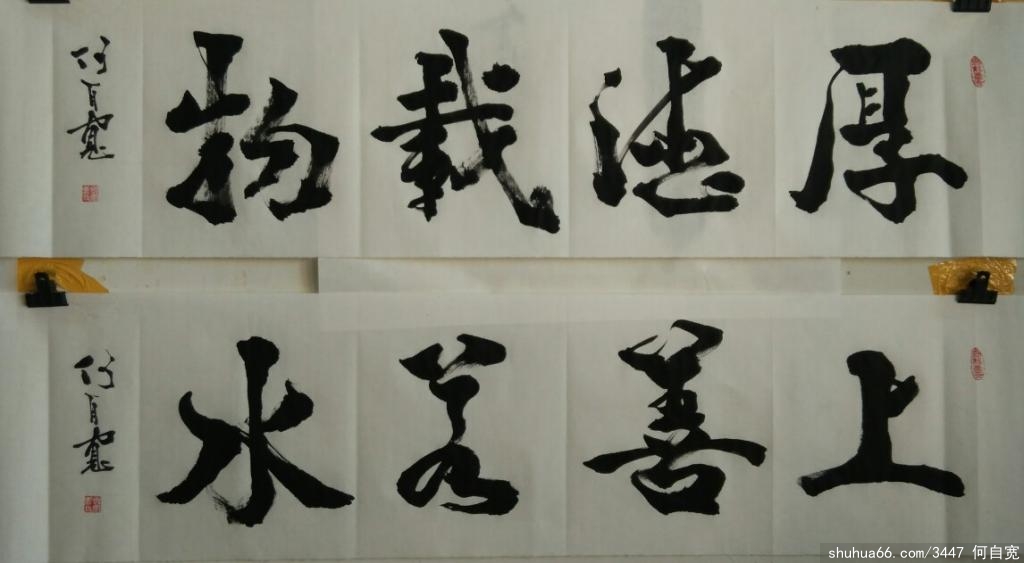 厚德載物
何自寬
上善若水
何自寬
shuhua66.com/3447 何自宽